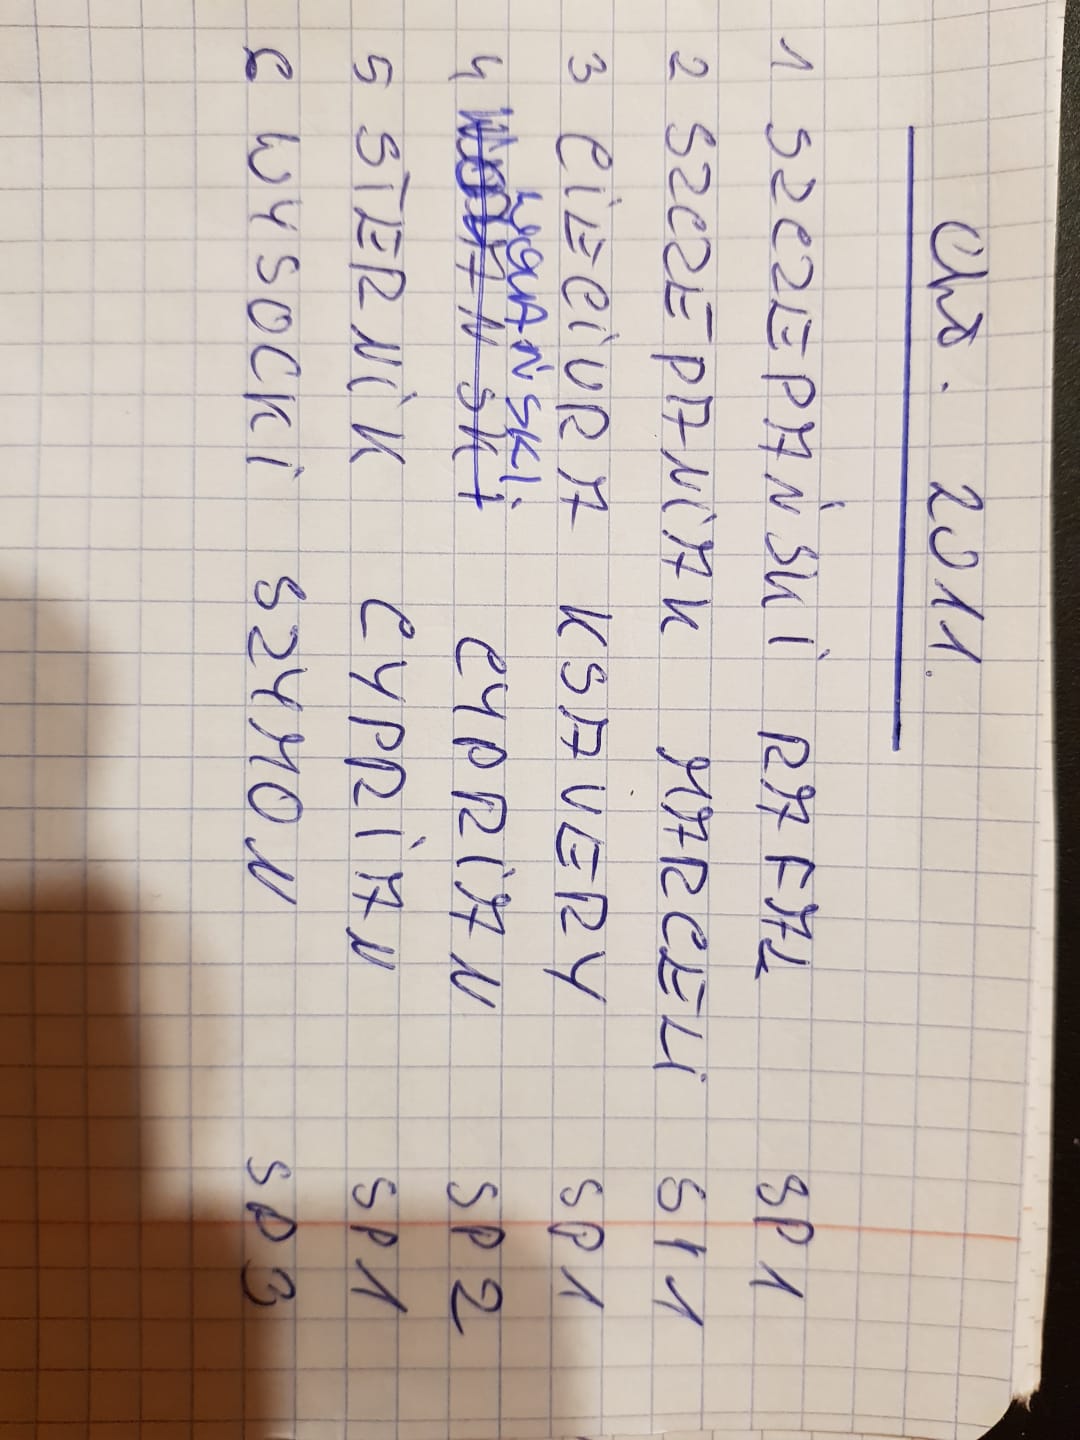 Chł. 2011.
1 SZCZEPAŃSKI RAFAŁ SP1
2 SZCZEPANIAK MARCELI SP1
3 CIECIURA KSAVERY SP1
4 CYPRIAN SP2
5 STERNIK CYPRIAN SP1
6 WYSOCKI SZYMON SP3